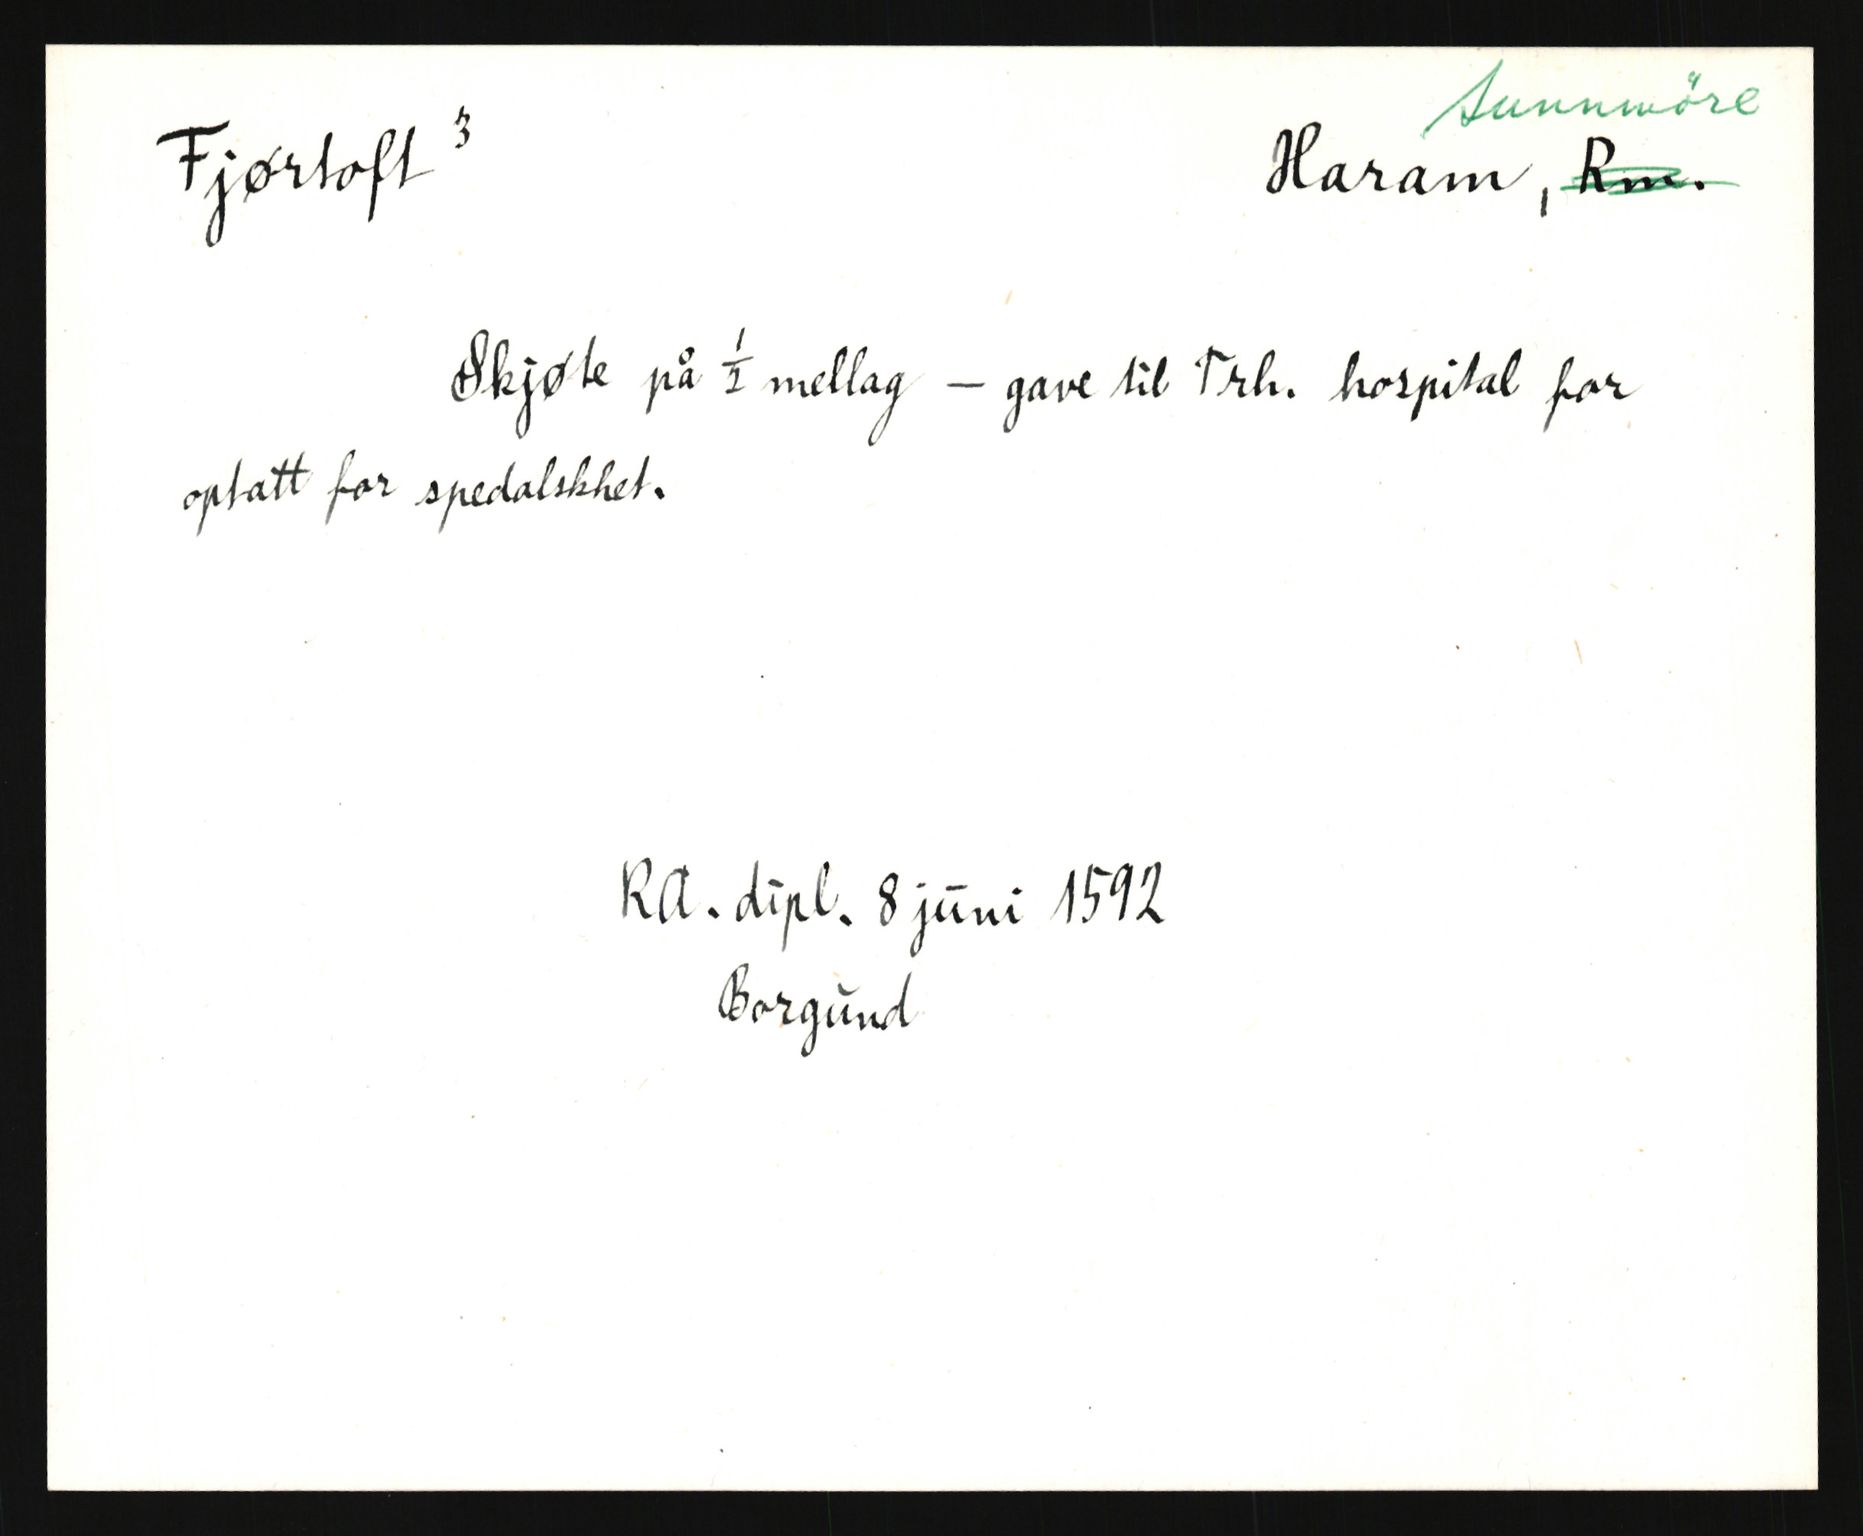 Sunnmöre
Fjørtoft ³ Haram, Rm.
Skjøte på ½ mellag – gave til Trh. hospital for
optatt for spedalskhet.
RA. dipl. 8 juni 1592
Borgund